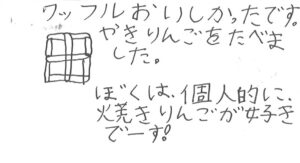 ワッフルおいしかったです。
やきりんごをたべま
した。
ぼくは、個人的に、
焼きりんごが好き
でーす!